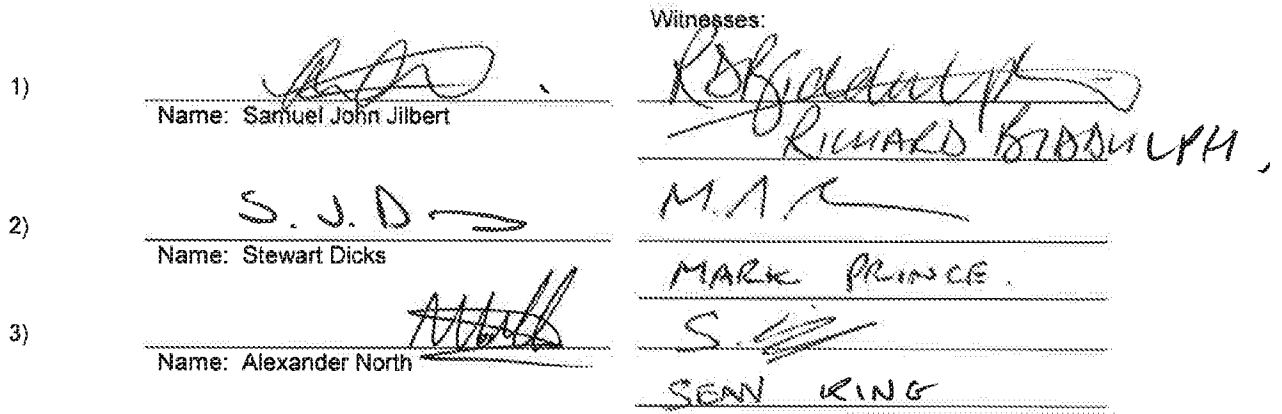 Witnesses:
1)
Name: Samuel John Jilbert
RDBiddulph
RICHARD BIDDULPH,
2)
S. J. D
Name: Stewart Dicks
M. A.
MARK PRINCE.
3)
Name: Alexander North
S.
SEAN KING